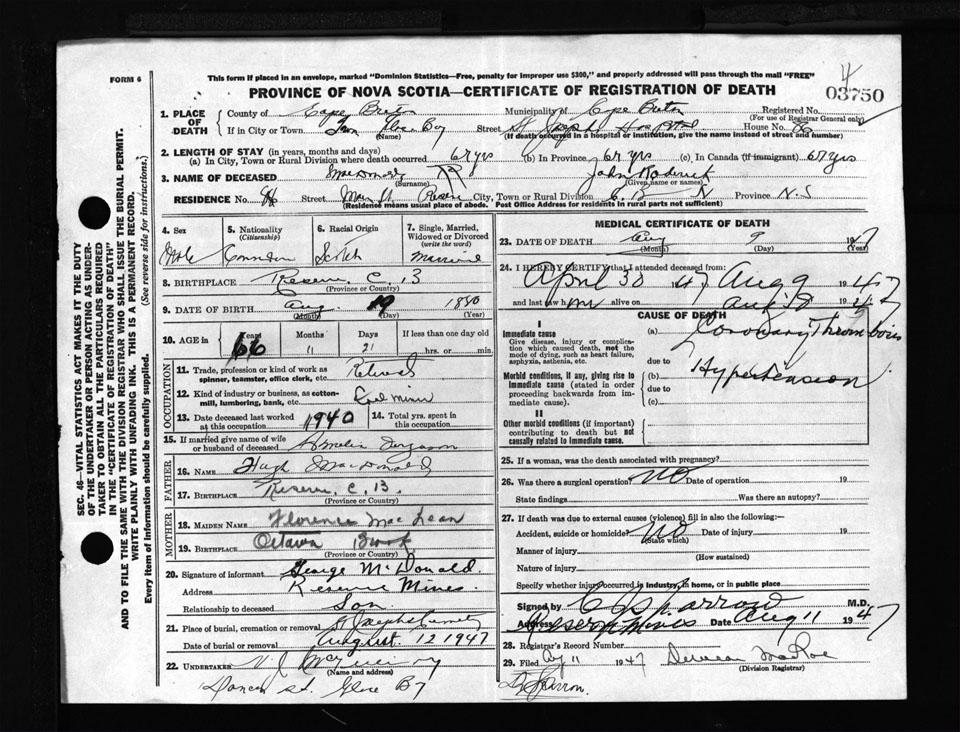 FORM 6
This form if placed in an envelope, marked "Dominion Statistics—Free, penalty for improper use $300," and properly addressed will pass through the mail "FREE"
4
03750
PROVINCE OF NOVA SCOTIA—CERTIFICATE OF REGISTRATION OF DEATH
1. PLACE OF DEATH
County of Cape Breton Municipality of Cape Breton Registered No.
(For use of Registrar General only)
If in City or Town Glace Bay Street St Joseph Hospital House No.
(Name) (If death occurred in a hospital or institution, give the name instead of street and number)
2. LENGTH OF STAY (in years, months and days)
(a) In City, Town or Rural Division where death occurred 67 yrs (b) In Province 67 yrs (c) In Canada (if immigrant) 67 yrs
3. NAME OF DECEASED MacDonald John Roderick
(Surname) (Given name or names)
RESIDENCE No. Street Main St. Reserve City, Town or Rural Division C. B Province N.S
(Residence means usual place of abode. Post Office Address for residents in rural parts not sufficient)
4. Sex 5. Nationality (Citizenship) 6. Racial Origin 7. Single, Married, Widowed or Divorced (write the word)
Male Canadian Scotch Married
8. BIRTHPLACE Reserve C. B
(Province or Country)
9. DATE OF BIRTH Aug 19 1880
(Month) (Day) (Year)
10. AGE in Years Months Days If less than one day old
66 11 21 hrs. or min.
OCCUPATION
11. Trade, profession or kind of work as spinner, teamster, office clerk, etc. Retired
12. Kind of industry or business, as cotton-mill, lumbering, bank, etc. Coal miner
13. Date deceased last worked at this occupation 1940 14. Total yrs. spent in this occupation
15. If married give name of wife or husband of deceased Ferguson
FATHER
16. NAME Hugh MacDonald
17. BIRTHPLACE Reserve C. B.
(Province or Country)
MOTHER
18. MAIDEN NAME Florence MacLean
19. BIRTHPLACE Ottawa Brook
(Province or Country)
20. Signature of informant George McDonald
Address Reserve Mines
Relationship to deceased Son
21. Place of burial, cremation or removal St Josephs Cemetery
Date of burial or removal August 12 1947
22. UNDERTAKER
(Name and address)
St. Glace Bay
MEDICAL CERTIFICATE OF DEATH
23. DATE OF DEATH Aug 9 1947
(Month) (Day) (Year)
24. I HEREBY CERTIFY that I attended deceased from:
April 30 47 Aug 9 1947
and last saw him alive on Aug. 8 1947
CAUSE OF DEATH
I
Immediate cause
Give disease, injury or complication which caused death, not the mode of dying, such as heart failure, asphyxia, asthenia, etc.
(a) Coronary Thrombosis
due to
Morbid conditions, if any, giving rise to immediate cause (stated in order proceeding backwards from immediate cause).
(b) Hypertension
due to
(c)
II
Other morbid conditions (if important) contributing to death but not causally related to immediate cause.
25. If a woman, was the death associated with pregnancy?
26. Was there a surgical operation? No Date of operation 19
State findings Was there an autopsy?
27. If death was due to external causes (violence) fill in also the following:—
Accident, suicide or homicide? No Date of injury 19
(State which)
Manner of injury
(How sustained)
Nature of injury
Specify whether injury occurred in industry, in home, or in public place
Signed by Sparrow M.D.
Address Reserve Mines Date Aug 11 1947
28. Registrar's Record Number
29. Filed Aug 11 1947
(Division Registrar)
SEC. 46—VITAL STATISTICS ACT MAKES IT THE DUTY
OF THE UNDERTAKER OR PERSON ACTING AS UNDER-
TAKER TO OBTAIN ALL THE PARTICULARS REQUIRED
IN THE "CERTIFICATE OF REGISTRATION OF DEATH"
AND TO FILE THE SAME WITH THE DIVISION REGISTRAR WHO SHALL ISSUE THE BURIAL PERMIT.
WRITE PLAINLY WITH UNFADING INK. THIS IS A PERMANENT RECORD.
Every item of information should be carefully supplied. (See reverse side for instructions.)